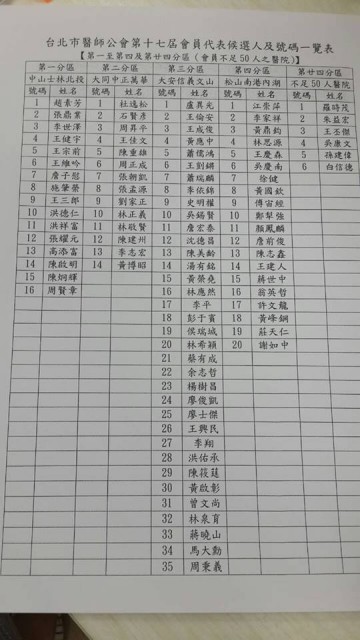 台北市醫師公會第十七屆會員代表候選人及號碼一覽表
【第一至第四及第廿四分區（會員不足50人之醫院）】
第一分區 第二分區 第三分區 第四分區 第廿四分區
中山士林北投 大同中正萬華 大安信義文山 松山南港內湖 不足50人醫院
號碼 姓名 號碼 姓名 號碼 姓名 號碼 姓名 號碼 姓名
1 趙素芳 1 杜逸松 1 盧具光 1 江崇萍 1 羅時茂
2 張鼎業 2 石賢彥 2 王倫安 2 李家祥 2 朱益宏
3 李世澤 3 周昇平 3 王成俊 3 黃鼎鈞 3 王丕傑
4 王健宇 4 王佳文 4 黃應中 4 林恩源 4 吳康文
5 王宗前 5 陳重雄 5 蕭儒鴻 5 王慶森 5 孫建偉
6 王維吟 6 周正成 6 王釧鏘 6 吳慶南 6 白信德
7 詹子慰 7 張朝凱 7 蕭瑞麟 7 徐健
8 施肇榮 8 張孟源 8 李依錦 8 黃國欽
9 王三郎 9 劉家正 9 史明權 9 傅宙經
10 洪德仁 10 林正義 10 吳錫賢 10 鄭犁強
11 洪祥富 11 林敬賢 11 詹宏泰 11 顏鳳麟
12 張耀元 12 陳建州 12 沈德昌 12 詹前俊
13 高添富 13 李志宏 13 陳美齡 13 陳志鑫
14 陳啟明 14 黃博昭 14 湯有銘 14 王建人
15 陳炯輝 15 黃榮堯 15 蔣世中
16 周賢章 16 林應然 16 翁英哲
17 李平 17 許文龍
18 彭于賓 18 黃峰銅
19 侯瑞城 19 莊天仁
20 林希穎 20 謝如中
21 蔡有成
22 余志哲
23 楊樹昌
24 廖俊凱
25 廖士傑
26 王興民
27 李翔
28 洪佑承
29 陳莜蘧
30 黃啟彰
31 曾文尚
32 林泉育
33 蔣曉山
34 馬大勳
35 周秉義